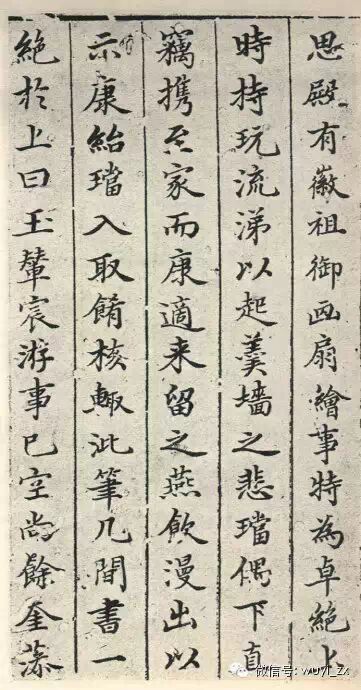 思殿有徽祖御画扇繪事特為卓絶上
時持玩流涕以起羹墻之悲璫偶下直
竊携至家而康適来留之燕飲漫出以
示康紿璫入取餚核輙泚筆几間書一
絶於上曰玉輦宸游事已空尚餘奎藻
微信号: wuyi_zx